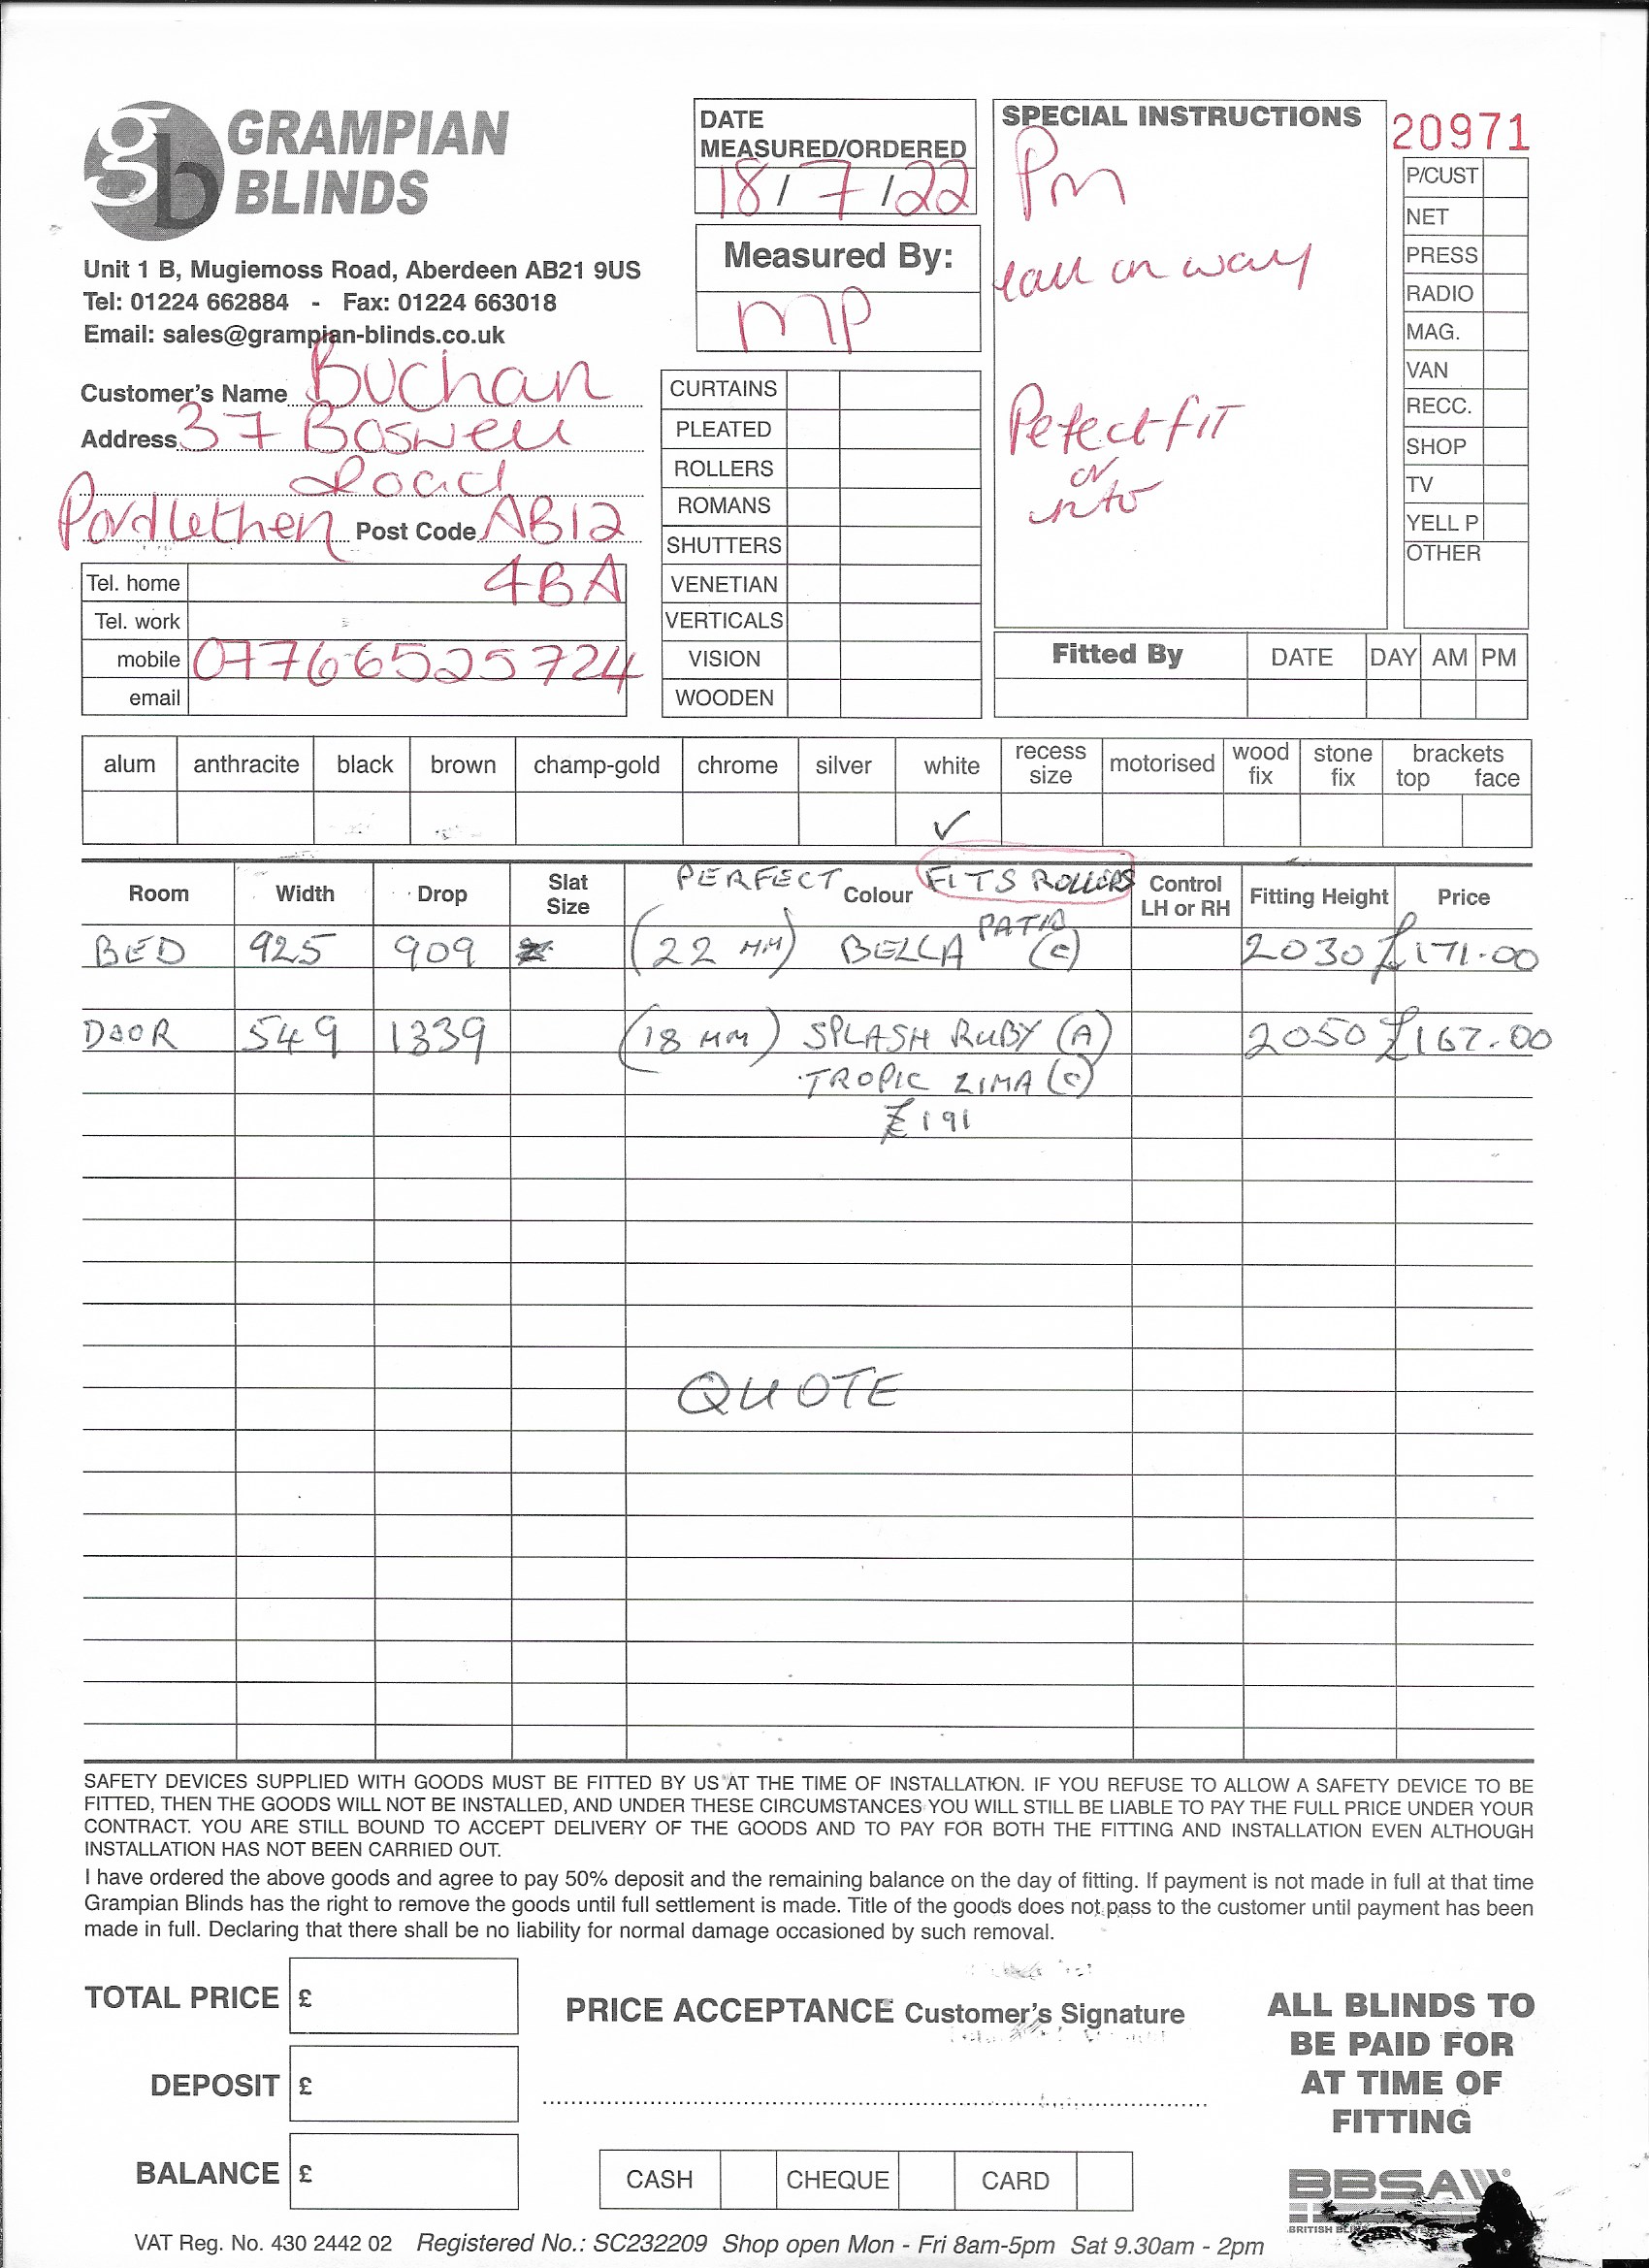 GRAMPIAN
BLINDS
Unit 1 B, Mugiemoss Road, Aberdeen AB21 9US
Tel: 01224 662884 - Fax: 01224 663018
Email: sales@grampian-blinds.co.uk
Customer's Name Buchan
Address 37 Boswell
Road
Pordlethen Post Code AB12
4BA
Tel. home
Tel. work
mobile 07766525724
email
DATE
MEASURED/ORDERED
18/7/22
Measured By:
MP
CURTAINS
PLEATED
ROLLERS
ROMANS
SHUTTERS
VENETIAN
VERTICALS
VISION
WOODEN
SPECIAL INSTRUCTIONS
Pm
call on way
Pefect fit
or
into
20971
P/CUST
NET
PRESS
RADIO
MAG.
VAN
RECC.
SHOP
TV
YELL P
OTHER
Fitted By DATE DAY AM PM
alum anthracite black brown champ-gold chrome silver white recess size motorised wood fix stone fix brackets top face
✓
PERFECT FITS ROLLERS
Room Width Drop Slat Size Colour Control LH or RH Fitting Height Price
PATIO
BED 925 909 (22 MM) BELLA (C) 2030 £171.00
DOOR 549 1339 (18 MM) SPLASH RUBY (A) 2050 £167.00
TROPIC ZIMA (C)
£191
QUOTE
SAFETY DEVICES SUPPLIED WITH GOODS MUST BE FITTED BY US AT THE TIME OF INSTALLATION. IF YOU REFUSE TO ALLOW A SAFETY DEVICE TO BE
FITTED, THEN THE GOODS WILL NOT BE INSTALLED, AND UNDER THESE CIRCUMSTANCES YOU WILL STILL BE LIABLE TO PAY THE FULL PRICE UNDER YOUR
CONTRACT. YOU ARE STILL BOUND TO ACCEPT DELIVERY OF THE GOODS AND TO PAY FOR BOTH THE FITTING AND INSTALLATION EVEN ALTHOUGH
INSTALLATION HAS NOT BEEN CARRIED OUT.
I have ordered the above goods and agree to pay 50% deposit and the remaining balance on the day of fitting. If payment is not made in full at that time
Grampian Blinds has the right to remove the goods until full settlement is made. Title of the goods does not pass to the customer until payment has been
made in full. Declaring that there shall be no liability for normal damage occasioned by such removal.
TOTAL PRICE £
DEPOSIT £
BALANCE £
PRICE ACCEPTANCE Customer's Signature
CASH CHEQUE CARD
ALL BLINDS TO
BE PAID FOR
AT TIME OF
FITTING
BBSA
BRITISH
VAT Reg. No. 430 2442 02 Registered No.: SC232209 Shop open Mon - Fri 8am-5pm Sat 9.30am - 2pm